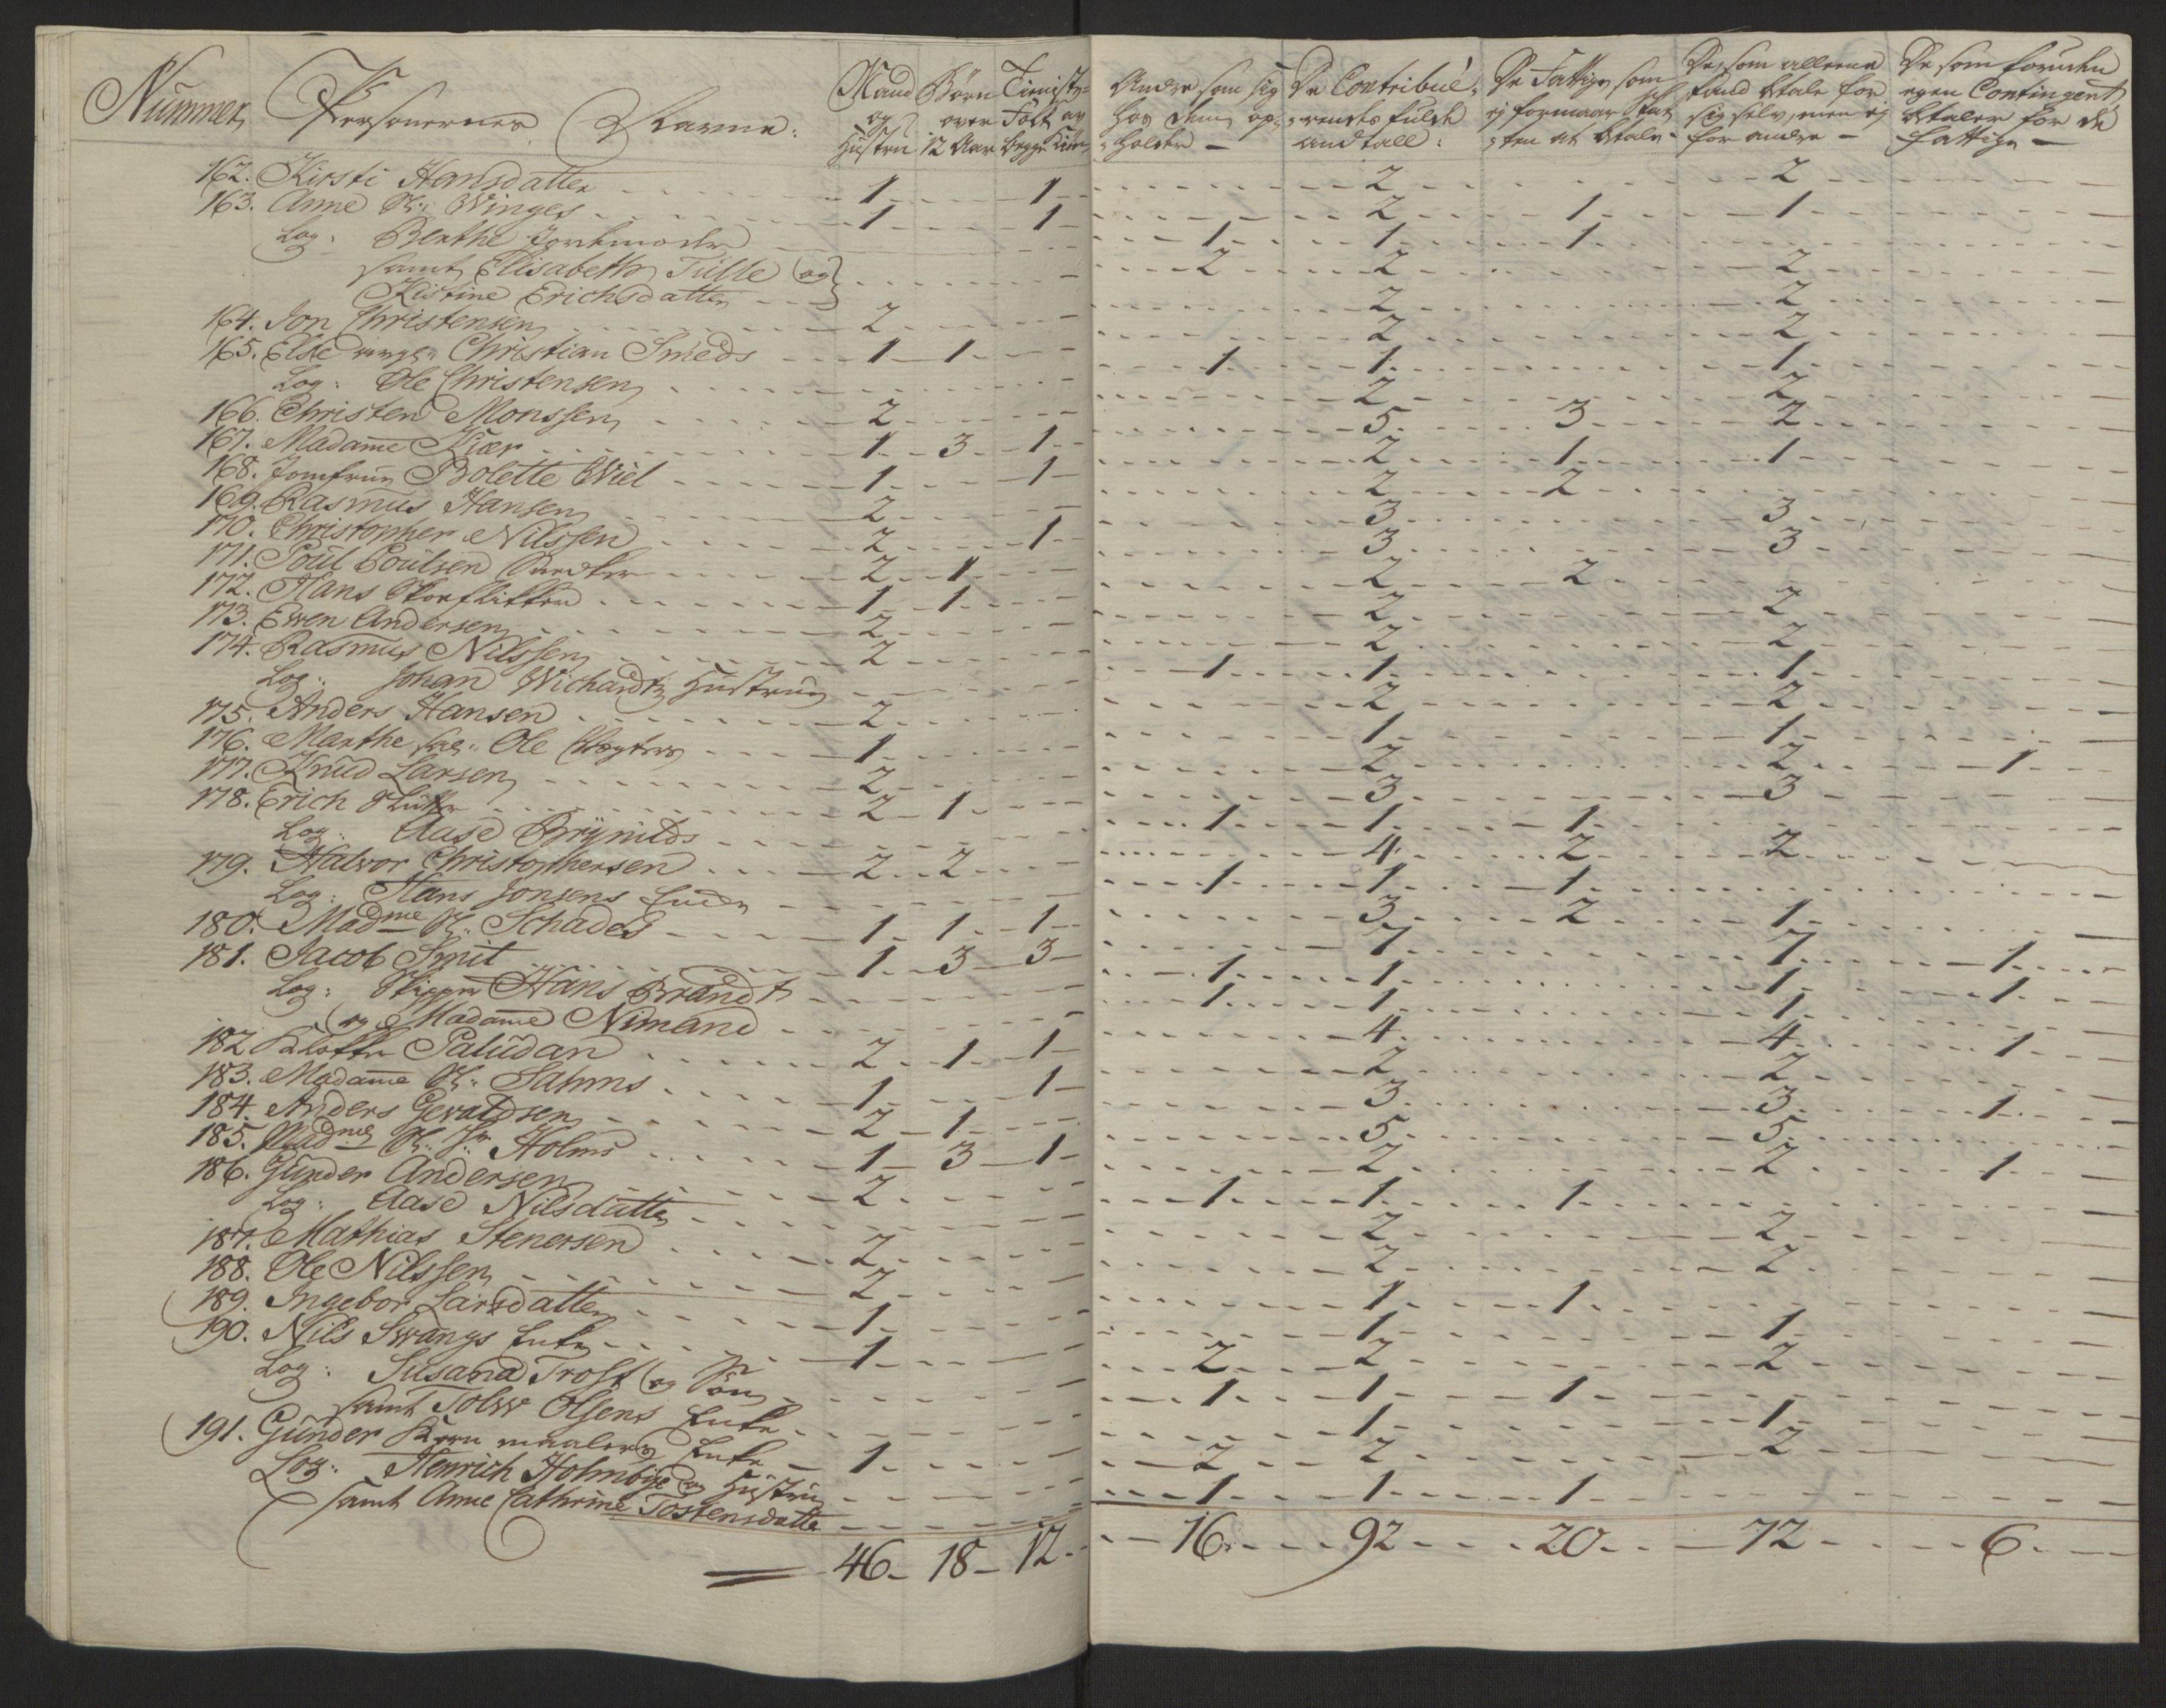 Nummer, Personernes Navne: Mand og Hustru Börn over 12 Aar Tieniste Folk av begge Kiön Andre som sig hos dem op-holder - De Contribue-rendes fulde andtall: De Fattige som ej formaar Skatten at betale - De som alleene kand betale for sig selv, men ej for andre - De som foruden egen Contingent betaler for de fattige -
162. Kirsti Hansdatter 1 1 2 2
163. Anne Winges 1 1 2 1 1
Log: Berthe Jordmoder 1 1 1
samt Elisabeth Tülle (og 2 2 2
Kistine Erichsdatter
164. Jon Christensen 2 2 2
165. Else Christian Smeds 1 1 2 2
Log: Ole Christensen 1 1 1
166. Christen Monssen 2 2 2
167. Madame Kiær 1 3 1 5 3 2
168. Jomfrue Bolette Wiel 1 1 2 1 1
169. Rasmus Hansen 2 2 2
170. Christopher Nilssen 2 1 3 3
171. Poul Poulsen 2 1 3 3
172. Hans 1 1 2 2
173. Ewen Andersen 2 2 2
174. Rasmus Nilssen 2 2 2
Log: Johan Wichardtz Hustrue 1 1 1
175. Anders Hansen 2 2 2
176. Marthe Ole 1 1 1
177. Knud Larsen 2 2 2 1
178. Erich 2 1 3 3
Log: Aase Brynilds 1 1 1
179. Halvor Christophersen 2 2 4 2 2
Log: Hans Jonsens Enke 1 1 1
180. Madme Schades 1 1 1 3 2 1
181. Jacob Smit 1 3 3 7 7 1
Log: Skipper Hans Brandt 1 1 1 1
og Madame Nimand 1 1 1
182 Paludan 2 1 1 4 4 1
183. Madame Sahms 1 1 2 2
184. Anders Gevaldsen 2 1 3 3 1
185. Madme Holms 1 3 1 5 5
186. Gunder Andersen 2 2 2 1
Log: Aase Nilsdatter 1 1 1
187. Mathias Stenersen 2 2 2
188. Ole Nilssen 2 2 2
189. Ingebor Larsdatter 1 1 1
190. Nils Swangs Enke 1 1 1
Log: Susana Trost og Sön 2 2 2
samt Tolw Olsens Enke 1 1 1
191. Gunder Korn maalers Enke 1 1 1
Log: Henrich Holmboe og Hustrue 2 2 2
samt Anne Cathrine Tostensdatter 1 1 1
46 18 12 16 92 20 72 6